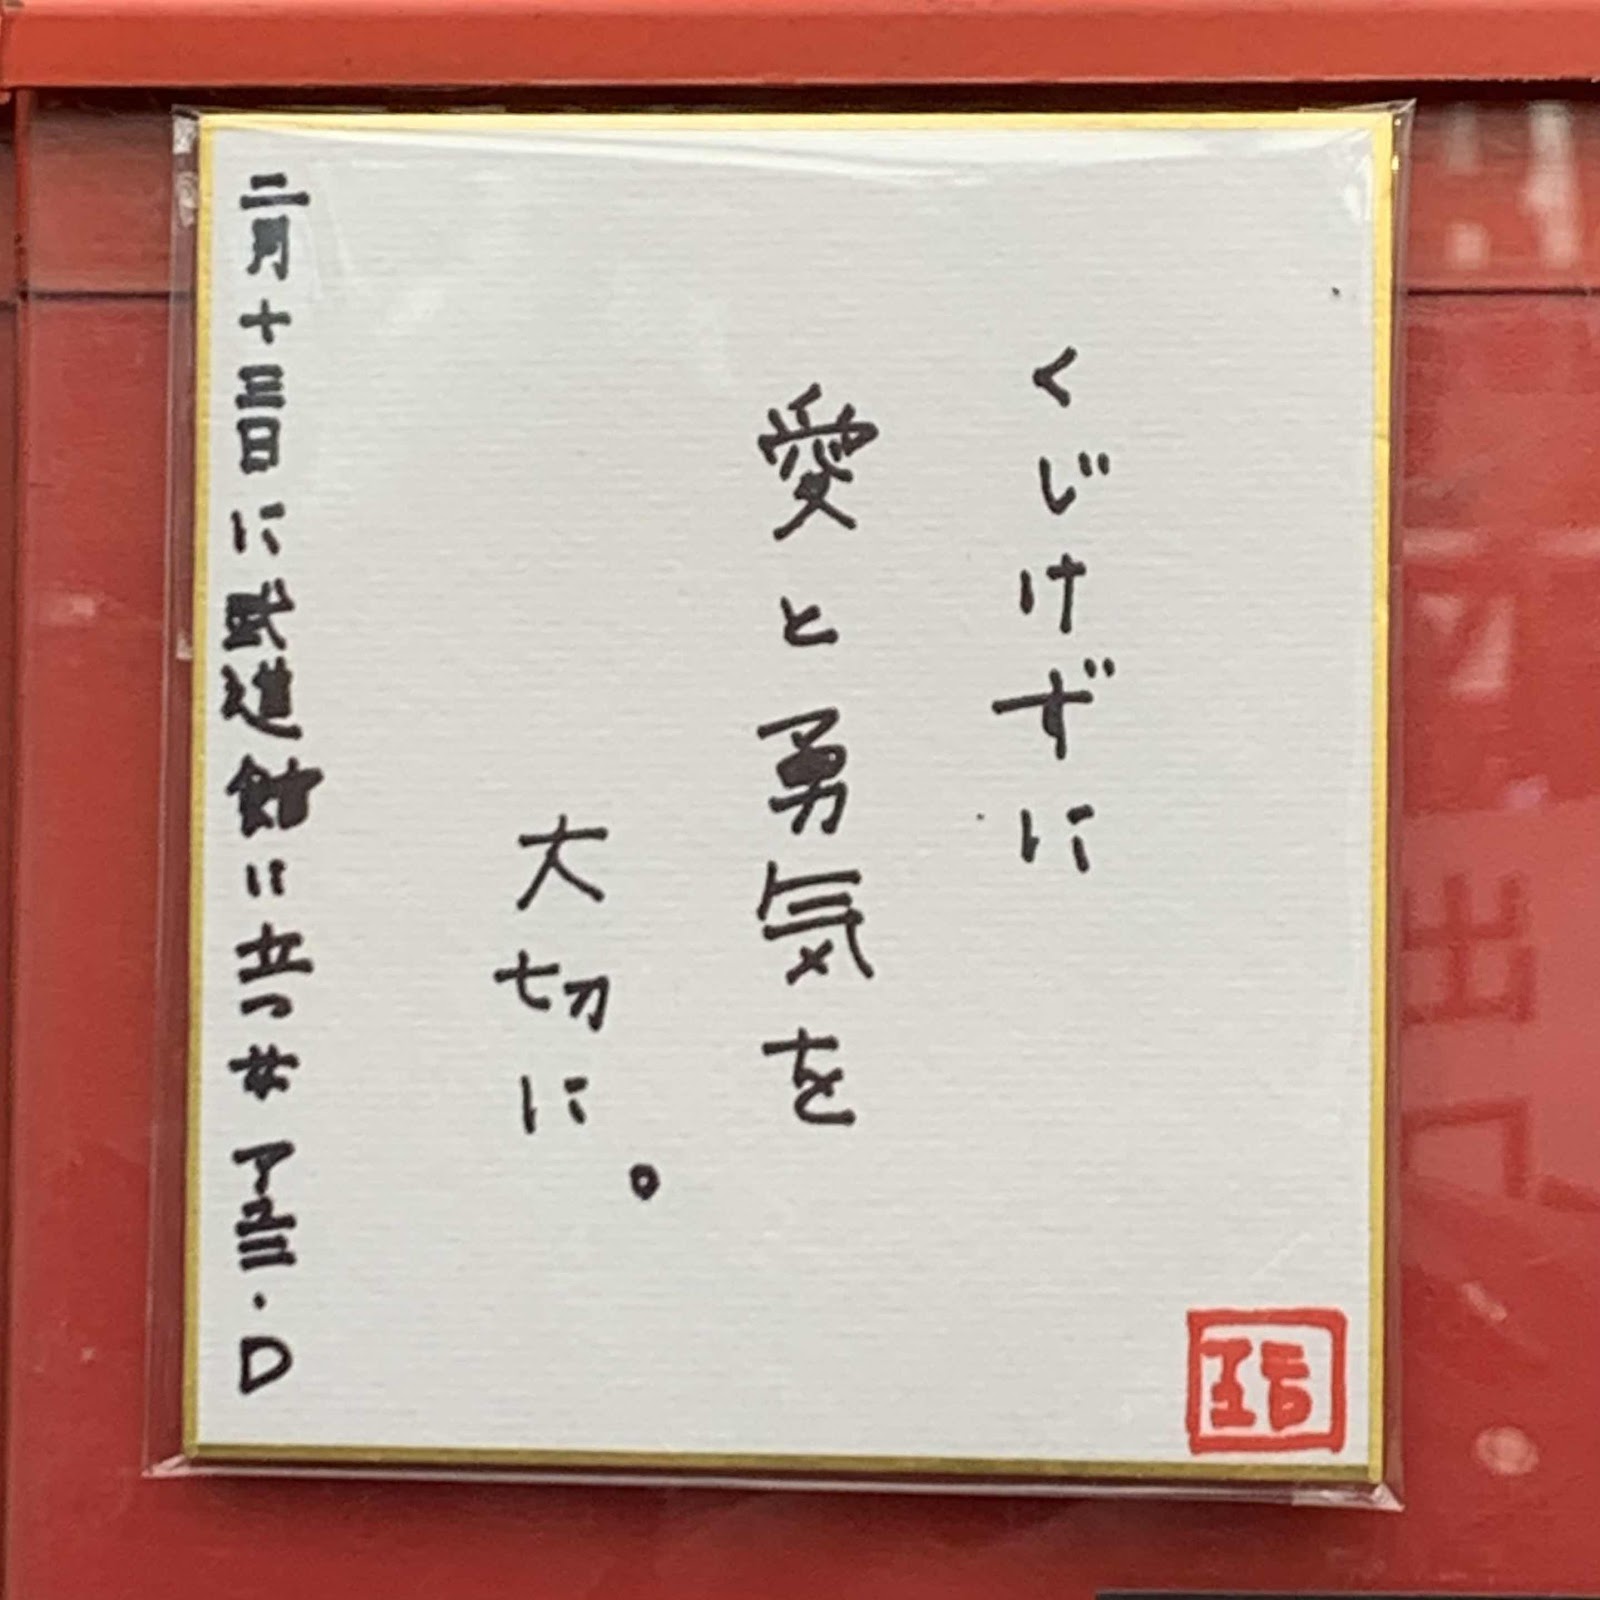 くじけずに
愛と勇気を
大切に。
二月十三日に武道館に立つ女 アユニ・D
アユニD